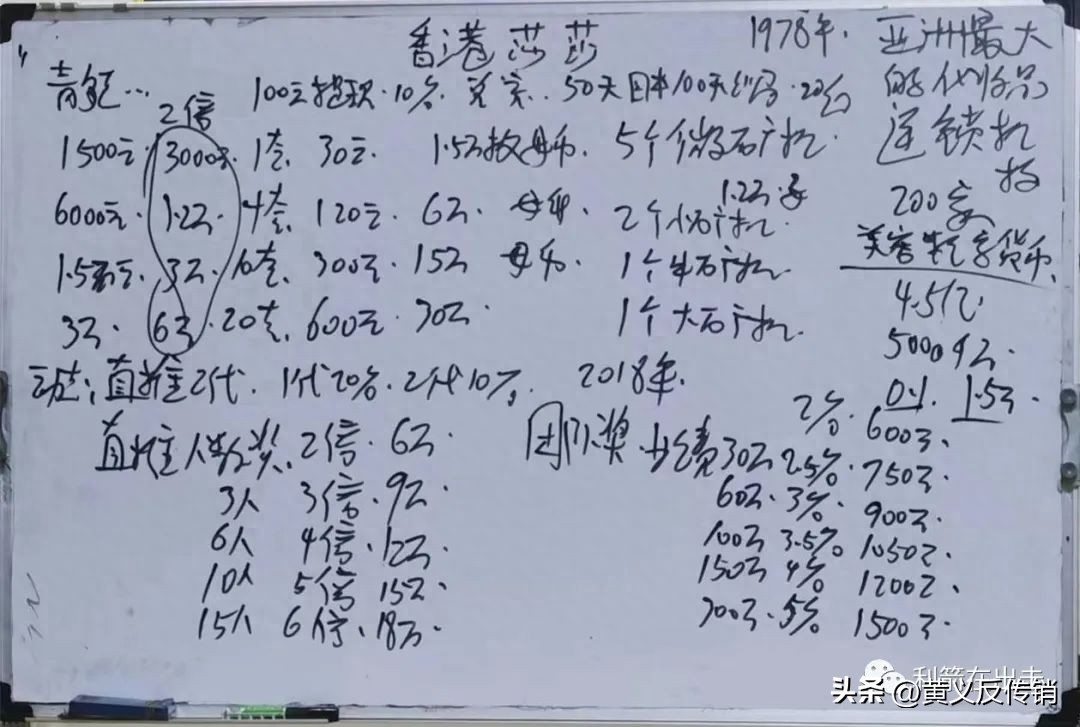 香港莎莎
1978年. 亚洲最大
的化妆品
连锁机
构
200家
美容数字货币
4.5亿
5000
0.1. 1.5
100元提现. 10%. 50天回本100天
2倍
1500元. 3000元. 1套 30元. 1.5万枚母币. 5个微石矿机.
6000元. 1.2万. 4套. 120元. 6万. 母币. 1.2万 2个小石矿机.
1.5万元. 3万. 10套. 300元. 15万 母币. 1个中石矿机.
3万. 6万. 20套. 600元. 30万. 1个大石矿机.
动态: 直推2代. 1代20%. 2代10%. 2018年.
直推人数奖. 2倍. 6万.
3人 3倍. 9万.
6人 4倍. 12万.
10人 5倍 15万.
15人 6倍. 18万.
团队奖. 2%. 600万.
30万 2.5%. 750万.
60万. 3%. 900万.
100万 3.5% 1050万.
150万 4% 1200万.
300万. 5% 1500万.
利箭在出击
头条 @黄义反传销